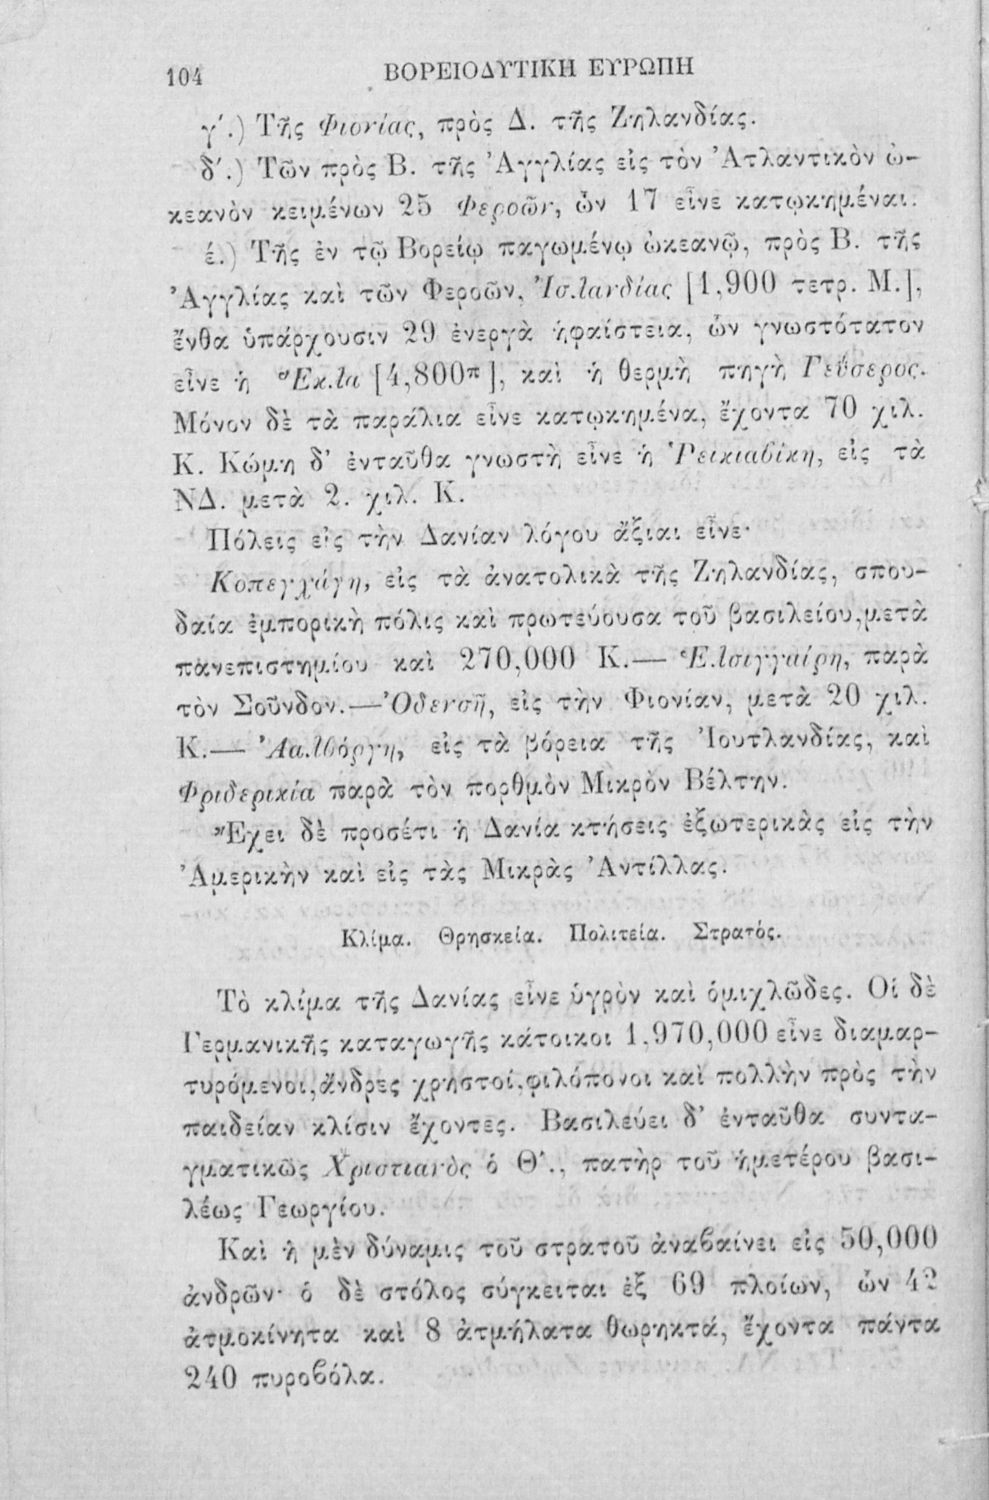 104 ΒΟΡΕΙΟΔΥΤΙΚΗ ΕΥΡΩΠΗ
γ΄.) Τῆς Φιονίας, πρὸς Δ. τῆς Ζηλανδίας.
δ΄.) Τῶν πρὸς Β. τῆς Ἀγγλίας εἰς τὸν Ἀτλαντικὸν ὠ-
κεανὸν κειμένων 25 Φεροῶν, ὧν 17 εἶνε κατῳκημέναι.
έ.) Τῆς ἐν τῷ Βορείῳ παγωμένῳ ὠκεανῷ, πρὸς Β. τῆς
Ἀγγλίας καὶ τῶν Φεροῶν, Ἰσλανδίας [1,900 τετρ. Μ.],
ἔνθα ὑπάρχουσιν 29 ἐνεργὰ ἡφαίστεια, ὧν γνωστότατον
εἶνε ἡ Ἔκλα [4,800π], καὶ ἡ θερμὴ πηγὴ Γεΰσερος.
Μόνον δὲ τὰ παράλια εἶνε κατῳκημένα, ἔχοντα 70 χιλ.
Κ. Κώμη δ’ ἐνταῦθα γνωστὴ εἶνε ἡ Ῥεικιαβίκη, εἰς τὰ
ΝΔ. μετὰ 2. χιλ. Κ.
Πόλεις εἰς τὴν Δανίαν λόγου ἄξιαι εἶνε·
Κοπεγχάγη, εἰς τὰ ἀνατολικὰ τῆς Ζηλανδίας, σπου-
δαία ἐμπορικὴ πόλις καὶ πρωτεύουσα τοῦ βασιλείου,μετὰ
πανεπιστημίου καὶ 270,000 Κ.— Ἑλσιγγαίρη, παρὰ
τὸν Σοῦνδον.—Ὀδενσῆ, εἰς τὴν Φιονίαν, μετὰ 20 χιλ.
Κ.— Ἀαλβόργη, εἰς τὰ βόρεια τῆς Ἰουτλανδίας, καὶ
Φριδερικία παρὰ τὸν πορθμὸν Μικρὸν Βέλτην.
Ἔχει δὲ προσέτι ἡ Δανία κτήσεις ἐξωτερικὰς εἰς τὴν
Ἀμερικὴν καὶ εἰς τὰς Μικρὰς Ἀντίλλας.
Κλίμα. Θρησκεία. Πολιτεία. Στρατός.
Τὸ κλίμα τῆς Δανίας εἶνε ὑγρὸν καὶ ὁμιχλῶδες. Οἱ δὲ
Γερμανικῆς καταγωγῆς κάτοικοι 1,970,000 εἶνε διαμαρ-
τυρόμενοι,ἄνδρες χρηστοί,φιλόπονοι καὶ πολλὴν πρὸς τὴν
παιδείαν κλίσιν ἔχοντες. Βασιλεύει δ’ ἐνταῦθα συντα-
γματικῶς Χριστιανὸς ὁ Θ΄., πατὴρ τοῦ ἡμετέρου βασι-
λέως Γεωργίου.
Καὶ ἡ μὲν δύναμις τοῦ στρατοῦ ἀναβαίνει εἰς 50,000
ἀνδρῶν· ὁ δὲ στόλος σύγκειται ἐξ 69 πλοίων, ὧν 42
ἀτμοκίνητα καὶ 8 ἀτμήλατα θωρηκτά, ἔχοντα πάντα
240 πυροβόλα.